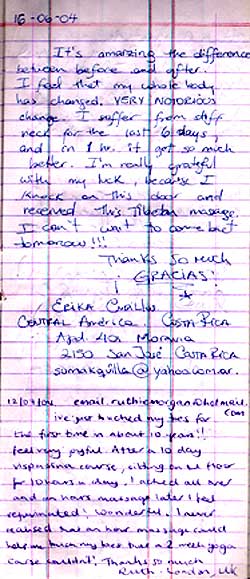 16-06-04
It's amazing the difference
between before and after.
I feel that my whole body
has changed. VERY NOTORIOUS
change. I suffer from stiff
neck for the last 6 days
and in 1 hr. it get so much
better. I'm really grateful
with my luck, because I
knock on this door and
received this Tibetan massage.
I can't wait to come back
tomorrow!!!
Thanks so much
¡GRACIAS!
ERIKA
CENTRAL América COSTA RICA
Apdo 401 Moravia
2150 San José COSTA RICA
sumakquilla@yahoo.com.ar
12/07/04 email. ruthiemorgan@hotmail.
com
i've just touched my toes for
the first time in about 10 years!!
feel very joyful. After a 10 day
vipassana course, sitting on the floor
for 10 hours a day. I ached all over
and an hours massage later I feel
rejuvinated! Wonderful. I never
realised that an hour massage could
help me touch my toes that a 2 week yoga
course couldn't. Thanks so much
Ruth - London, UK